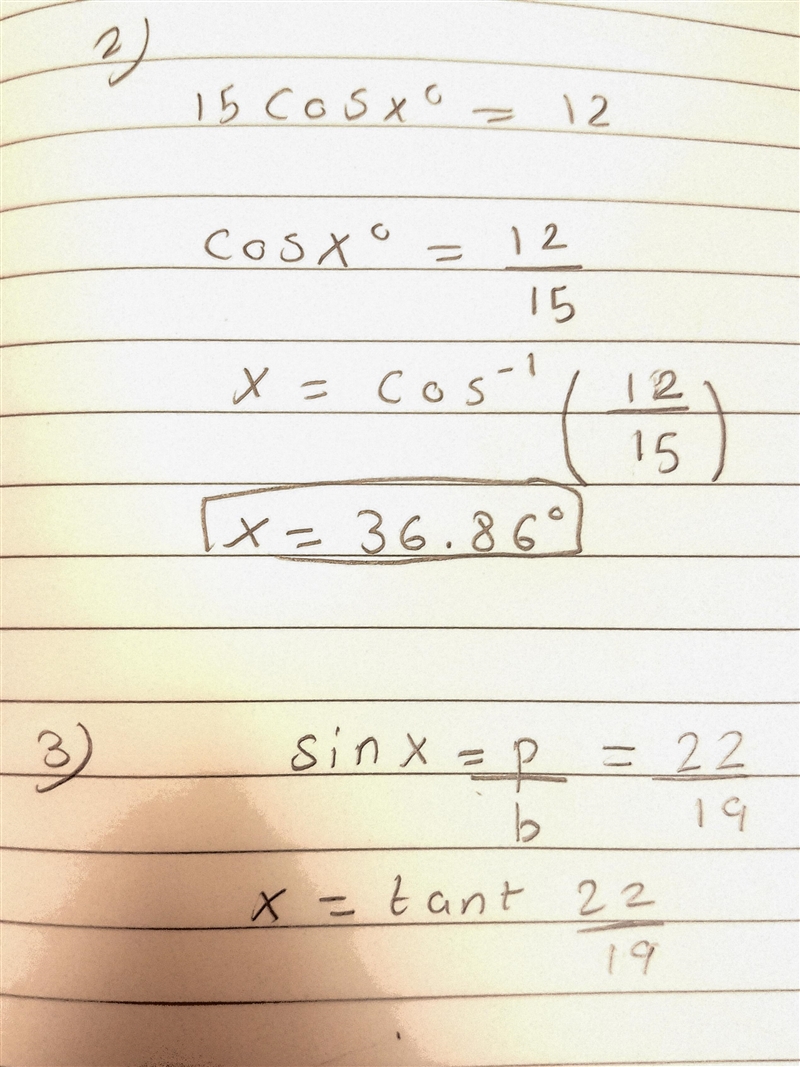 2)
15 cos x° = 12
cos x° = 12/15
x = cos⁻¹ (12/15)
x = 36.86°
3) sin x = p/b = 22/19
x = tant 22/19